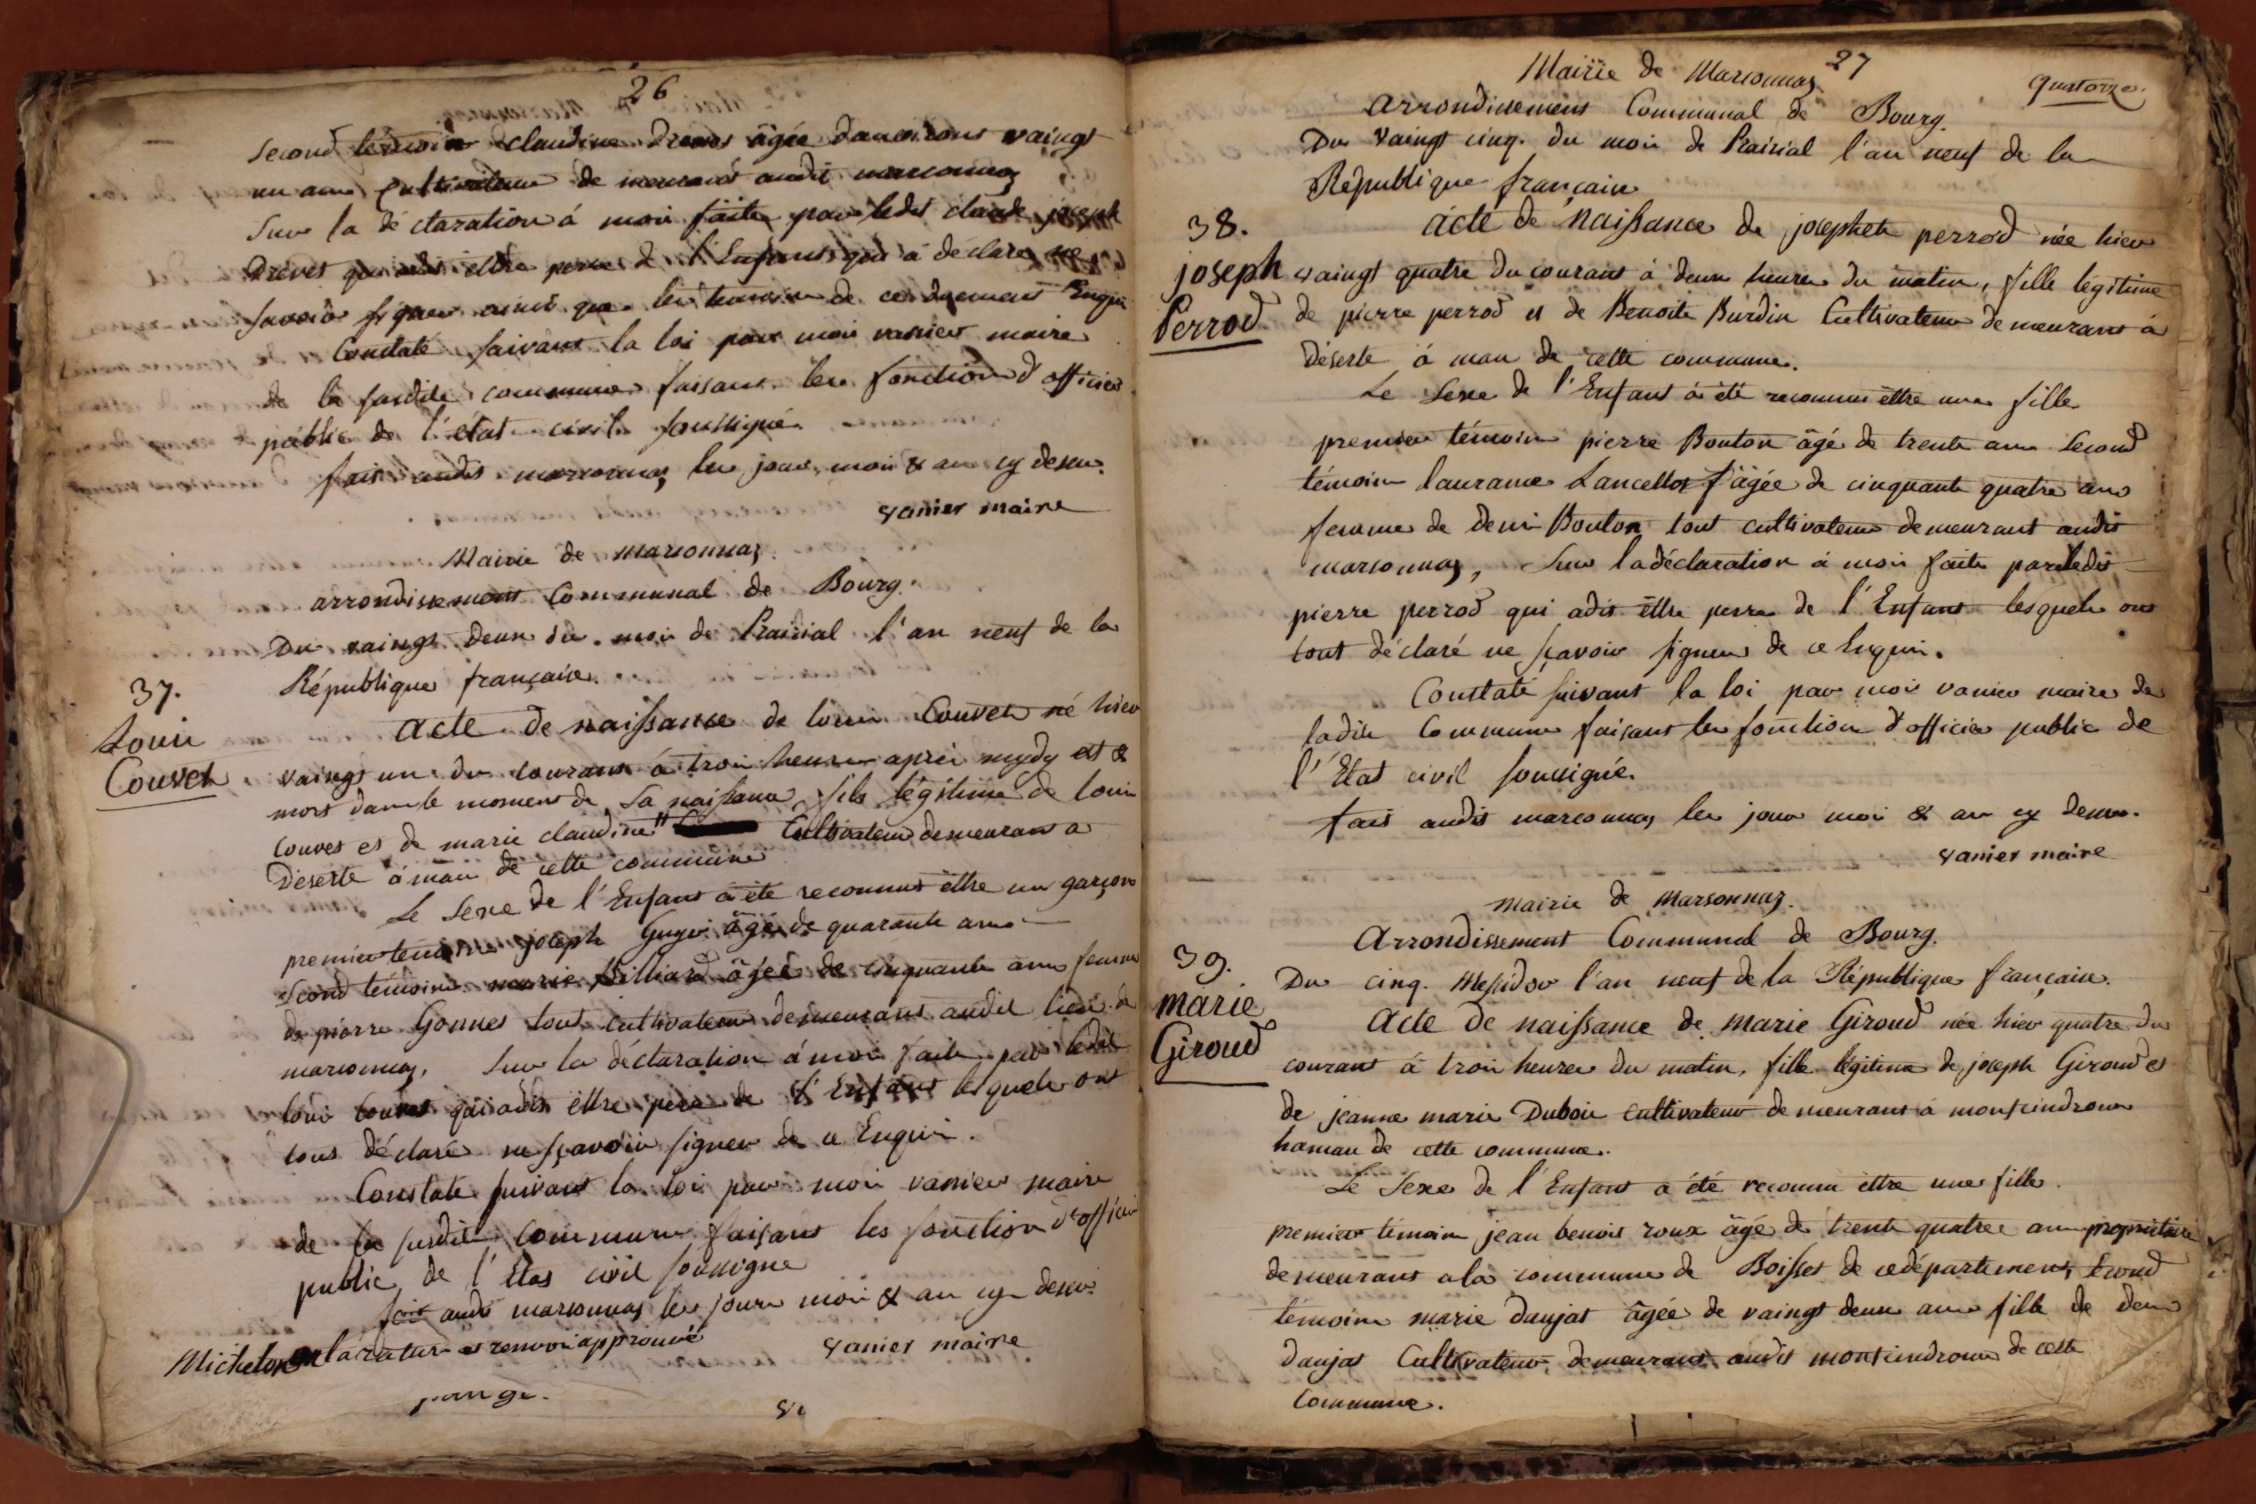 26
second témoin claudine Drevet âgée danvirons vaingt
un ans Cultivateur de meurant audit marsonnaz
Sur la déclaration à moi faite par ledit claude joseph
Drevet qui a dit ettre perre de l'Enfant, qui a déclaré ne
savoir signer ainsi que les temoins de ce duement Enqui
Constaté suivant la loi par moi vanier maire
de la susdite commune faisant les fonction d'officier
public de l'état civil soussigné
fait audit marsonnaz les jour, moi & an cy desu.
vanier maire
Mairie de marsonnaz.
arrondissement Communal de Bourg.
Du vaingt deux du moi de Prairial l'an neuf de la
République française.
37.
Louis
Couvet
acte de naissance de louis Couvet né hier
vaingt un du courant à trois heures après mydy et &
mort dans le moment de sa naissance, fils légitime de louis
couvet et de marie claudine " Cultivateur demeurant a
Déserte amau de cette commune
Le Sexe de l'Enfant à été reconnut ettre un garçon
premier temoin joseph Guyi âgé de quarante ans
Second témoin marie Billiard âgée de cinquante ans femme
de pierre Gonnet tout cultivateur demeurant audit lieu de
marsonnaz, Sur la déclaration à moi faite par ledit
louis couvet qui a dit ettre pere de l'Enfant lesquels ont
tout déclaré ne sçavoir signer de ce Enquis.
Constaté suivant la loi par moi vanier maire
de la susdite Commune faisant les fonction d'officier
public de l'Etat civil soussigné
fait audit marsonnaz les jour moi & an cy desu.
vanier maire
Michelon la rature et renvoi approuvé
pange.
Mairie de Marsonnaz 27
quatorze.
arrondissement Communal de Bourg.
Du vaingt cinq. du moi de Prairial l'an neuf de la
République française
38.
joseph
Perrod
acte de Naissance de josephete perrod née hier
vaingt quatre du courant à deux heures du matin, fille legitime
de pierre perrod et de Benoite Burdin Cultivateur demeurant à
déserte à mau de cette commune.
Le Sexe de l'Enfant à été reconnu ettre une fille
premier témoin pierre Bouton âgé de trente ans Second
témoin laurance Lancellot âgée de cinquante quatre ans
femme de deni Bouton tout cultivateur demeurant audit
marsonnaz, Sur la déclaration à moi faite par ledit
pierre perrod qui a dit ettre perre de l'Enfant lesquels ont
tout déclaré ne sçavoir signer de ce Enquis.
Constaté suivant la loi par moi vanier maire de
ladite Commune faisant les fonction d'officier public de
l'Etat civil soussigné.
fait audit marsonnaz les jour moi & an cy desu.
vanier maire
mairie de Marsonnaz.
Arrondissement Communal de Bourg.
39.
marie
Giroud
Du cinq. Messidor l'an neuf de la République française.
Acte de naissance de marie Giroud née hier quatre du
courant à trois heures du matin, fille légitime de joseph Giroud et
de jeanne marie Dubois cultivateur demeurant à monsindroux
hamau de cette commune.
Le Sexe de l'Enfant a été reconnu ettre une fille.
premier témoin jean benoit roux âgé de trente quatre ans propriétaire
demeurant a la commune de Boisset de ce département, second
témoin marie daujat âgée de vaingt deux ans fille de deni
daujat Cultivateur, demeurant audit monsindroux de cette
commune.